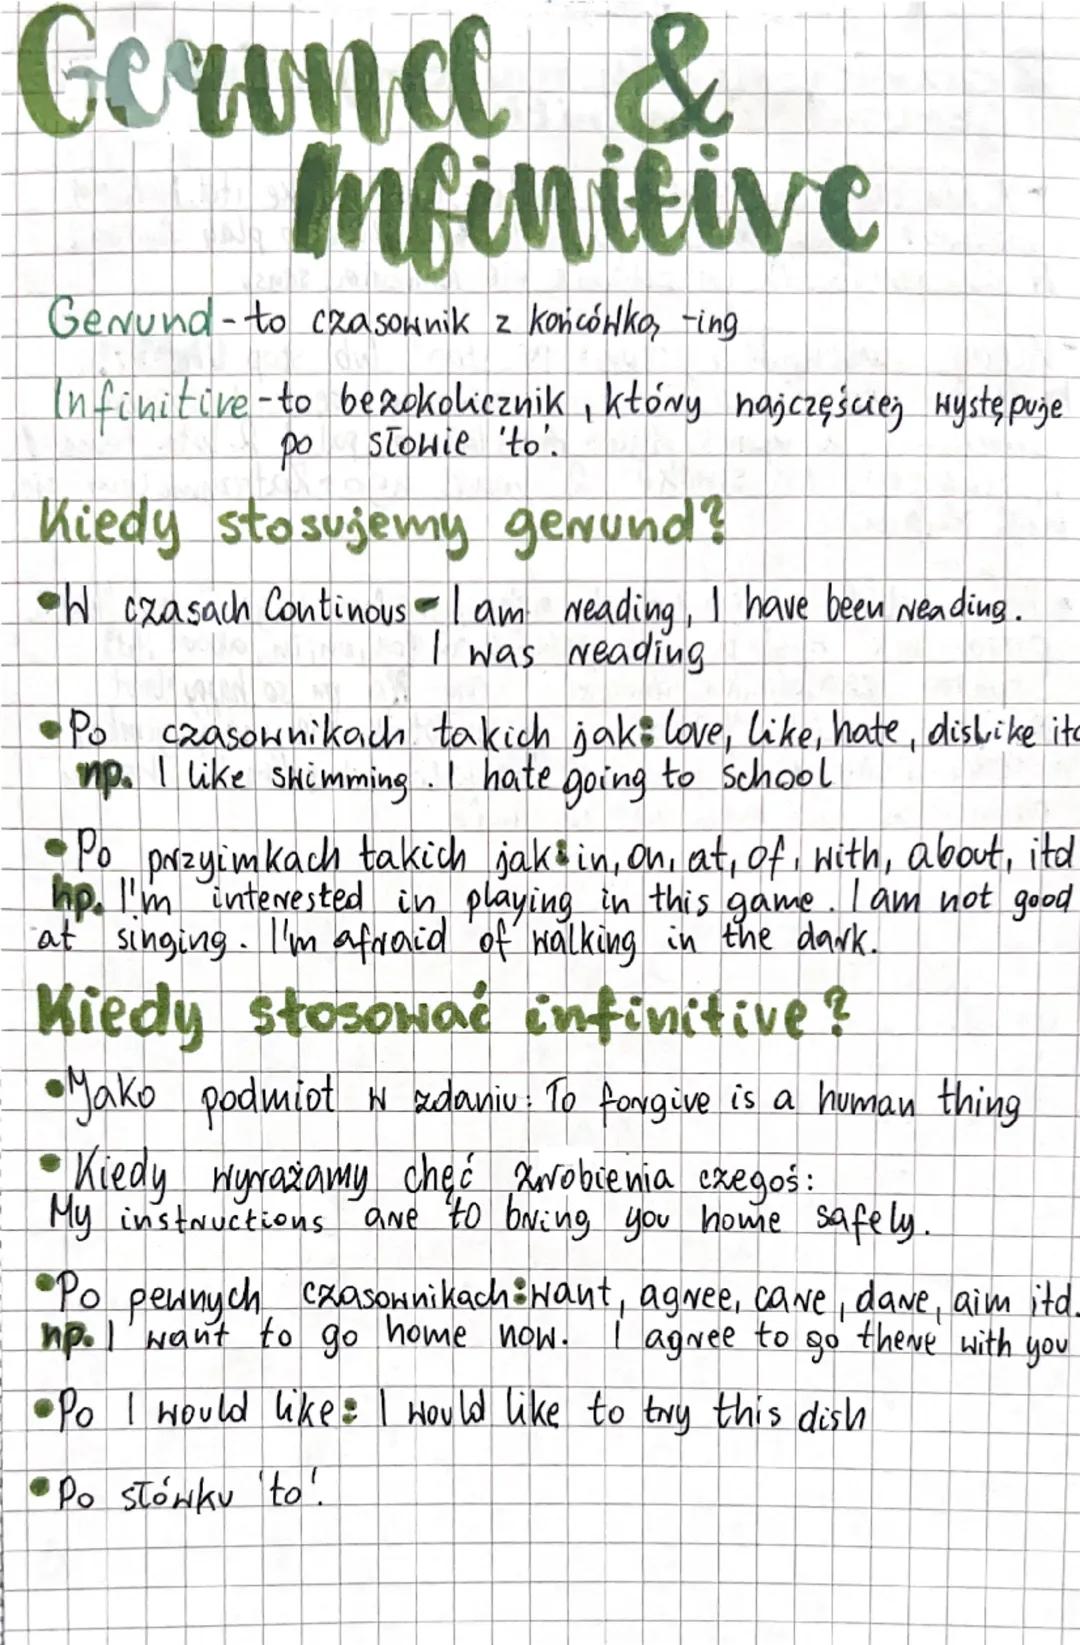 Gerund &
Infinitive
Gerund - to czasownik z końcówką -ing
Infinitive - to bezokolicznik, który najczęściej występuje
po słowie 'to'.
Kiedy stosujemy gerund?
•W czasach Continous - I am reading, I have been reading.
I was reading
•Po czasownikach takich jak: love, like, hate, dislike itd
np. I like swimming. I hate going to school
•Po przyimkach takich jak: in, on, at, of, with, about, itd
np. I'm interested in playing in this game. I am not good
at singing. I'm afraid of walking in the dark.
Kiedy stosować infinitive?
•Jako podmiot w zdaniu: To forgive is a human thing
•Kiedy wyrażamy chęć zrobienia czegoś:
My instructions are to bring you home safely.
•Po pewnych czasownikach: want, agree, care, dare, aim itd.
np. I want to go home now. I agree to go there with you
•Po I would like: I would like to try this dish
•Po słówku 'to'.